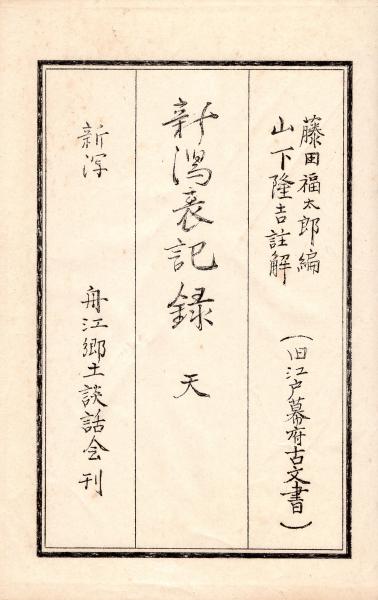 藤田福太郎編
山下隆吉註解
(旧江戸幕府古文書)
新潟表記録 天
新泻 舟江郷土談話会刊